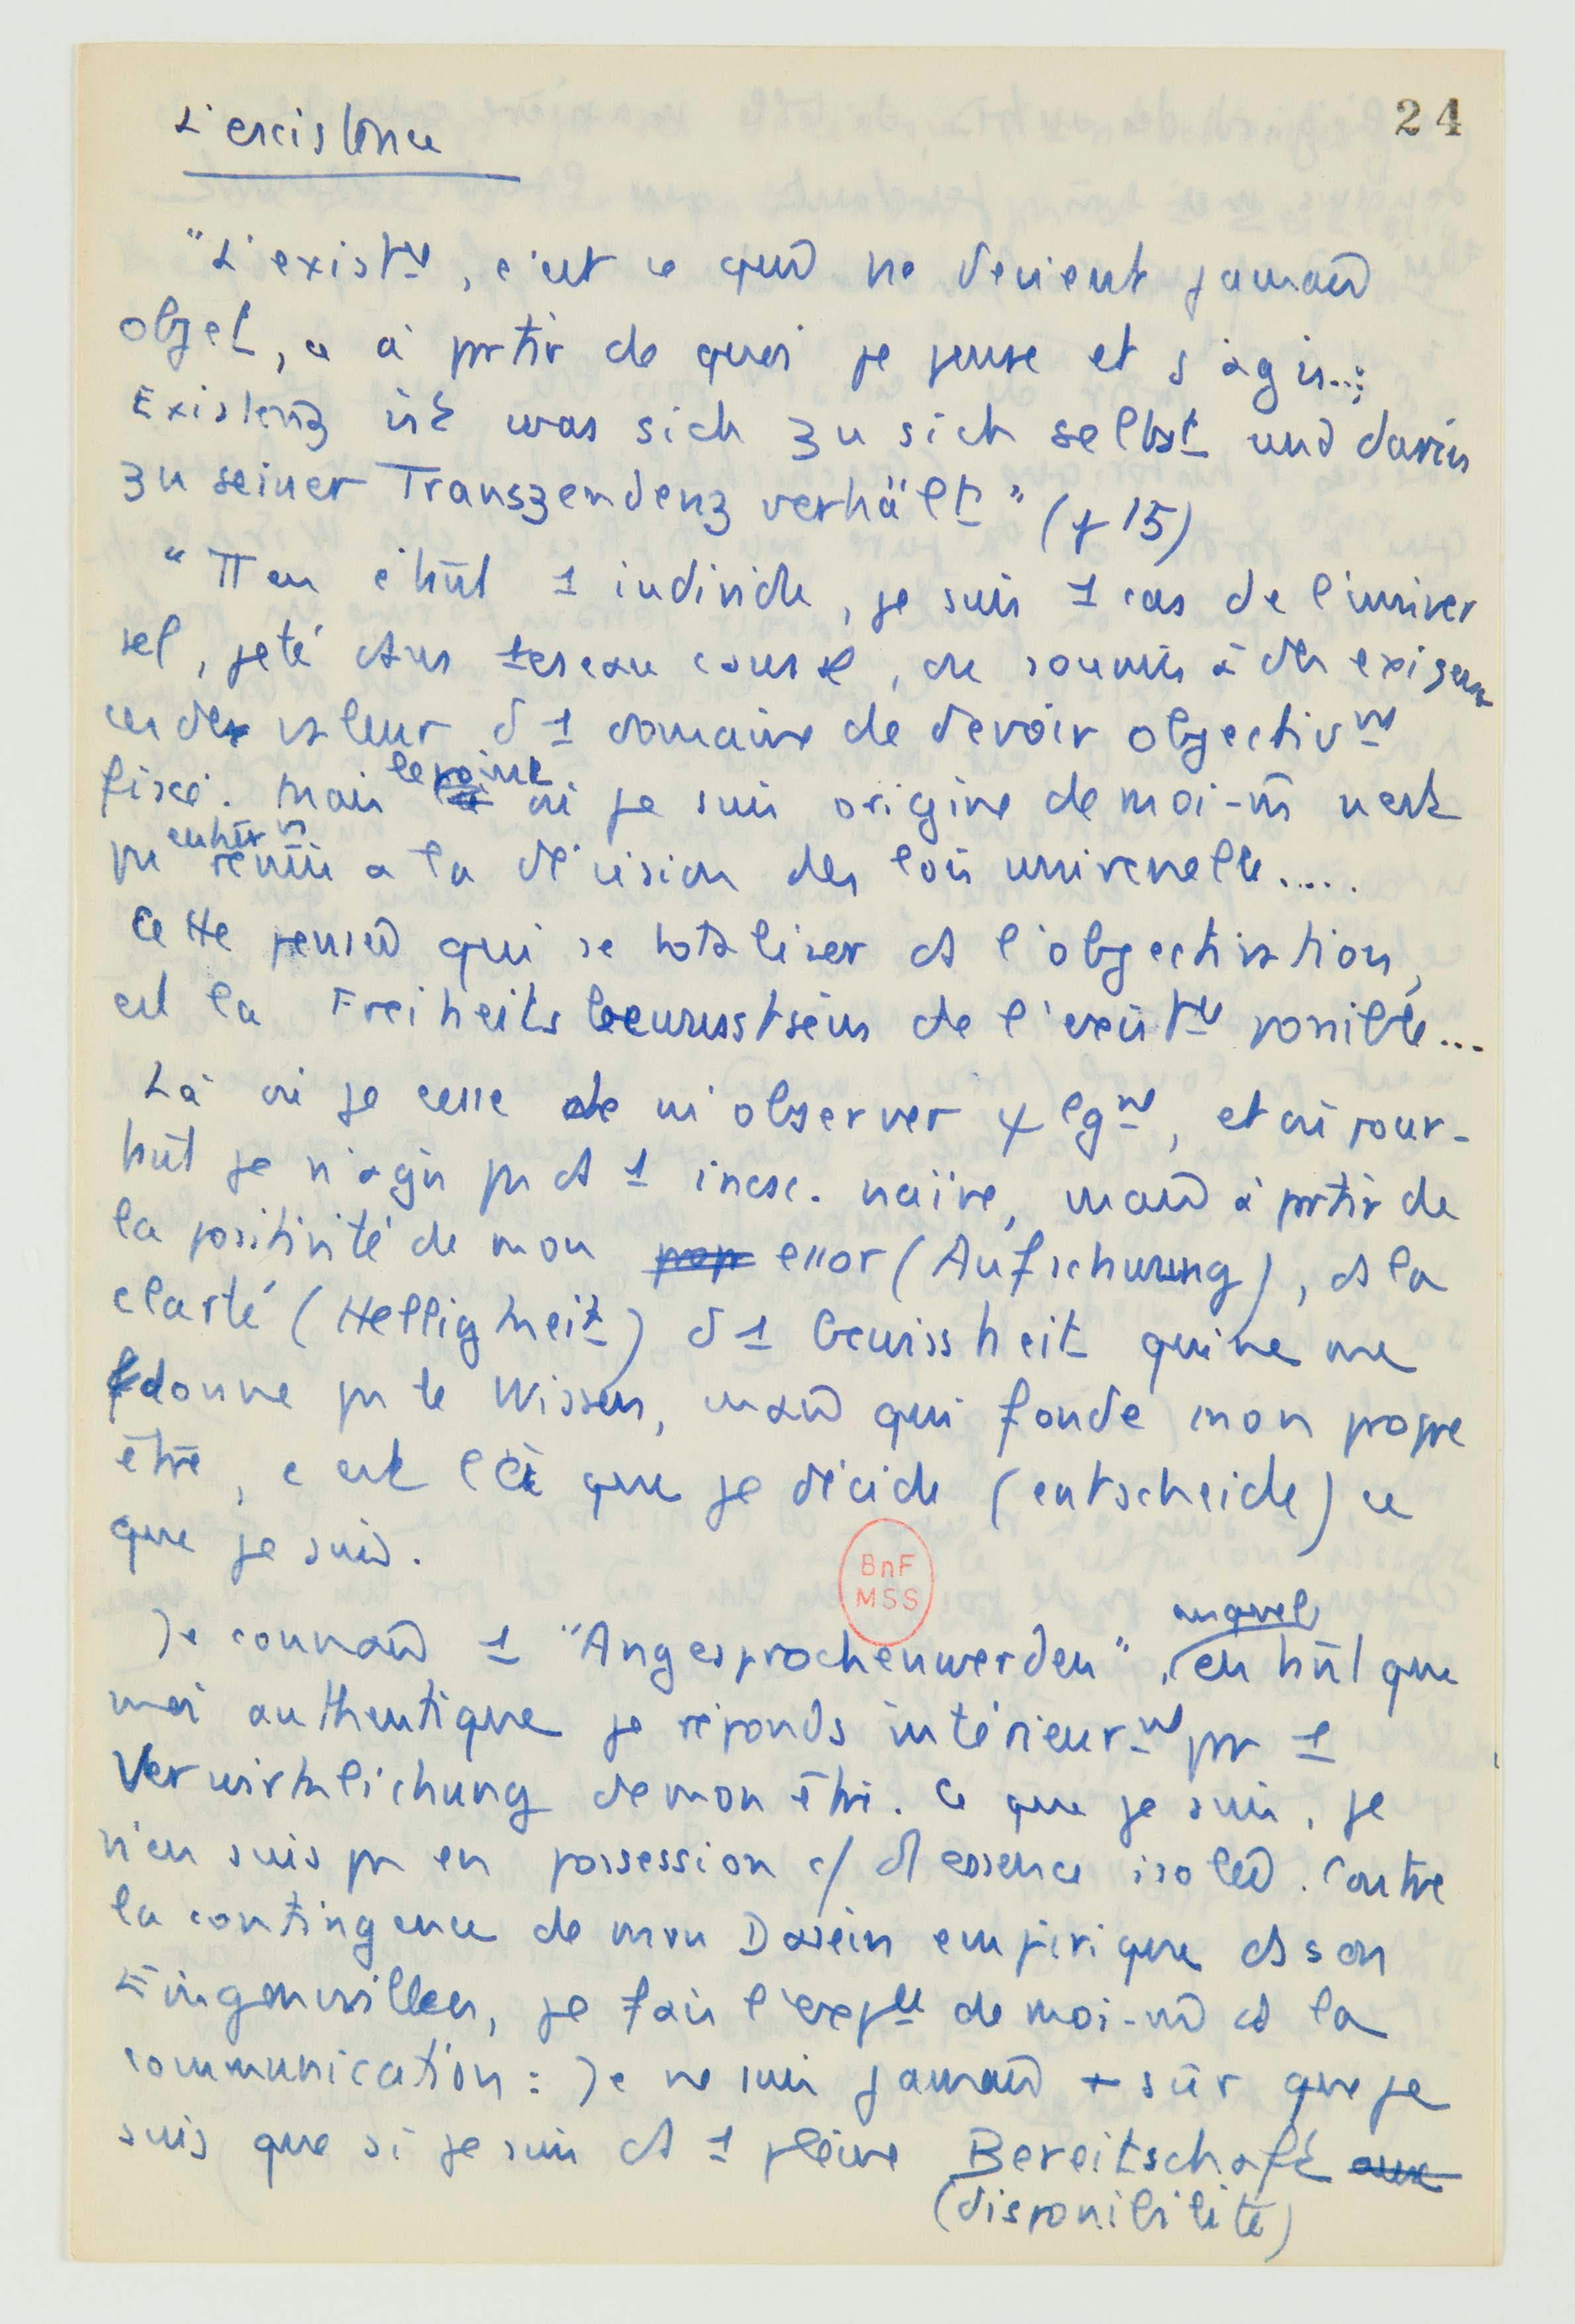 24
L'existence
"L'existce, c'est ce qui ne devient jamais
objet, ce à prtir de quoi je pense et j'agis...;
Existenz ist was sich zu sich selbst und darin
zu seiner Transzendenz verhält" (p 15)
"En étant 1 individu, je suis 1 cas de l'univer
sel, jeté ds un réseau causal, ou soumis à des exigen
ces de valeur d 1 domaine de devoir objectivmt
fixé. Mais le point où je suis origine de moi-m̄ n'est
pas entièrmt remis à la décision des lois universelles.....
Cette pensée qui se totaliser ds l'objectivation,
est la Freiheitsbewusstsein de l'existce possible...
Là où je cesse de m'observer ψlgmt, et où pour-
tant je n'agis pas ds 1 incsc. naïve, mais à prtir de
la positivité de mon essor (Aufschwung), ds la
clarté (Helligkeit) d 1 Gewissheit qui ne me
donne pas le Wissen, mais qui fonde mon propre
être, c'est là que je décide (entscheide) ce
que je suis.
BnF
MSS
Je connais 1 "Angesprochenwerden", auquel en tant que
moi authentique je réponds intérieurmt pr 1
Verwirklichung de mon être. Ce que je suis, je
n'en suis pas en possession c/ d'essence isolée. Contre
la contingence de mon Dasein empirique ds son
Eingenwillen, je fais l'expce de moi-m̄ ds la
communication : Je ne suis jamais + sûr que je
suis que si je suis ds 1 pleine Bereitschaft
(disponibilité)